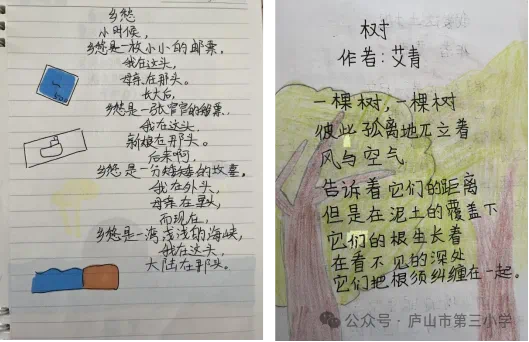 乡愁
小时候,
乡愁是一枚小小的邮票,
我在这头,
母亲在那头。
长大后,
乡愁是一张窄窄的船票,
我在这头,
新娘在那头。
后来啊,
乡愁是一分矮矮的坟墓,
我在外头,
母亲在里头,
而现在,
乡愁是一湾浅浅的海峡,
我在这头,
大陆在那头。
树
作者:艾青
一棵树,一棵树
彼此孤离地兀立着
风与空气
告诉着它们的距离
但是在泥土的覆盖下
它们的根生长着
在看不见的深处
它们把根须纠缠在一起。
公众号·庐山市第三小学